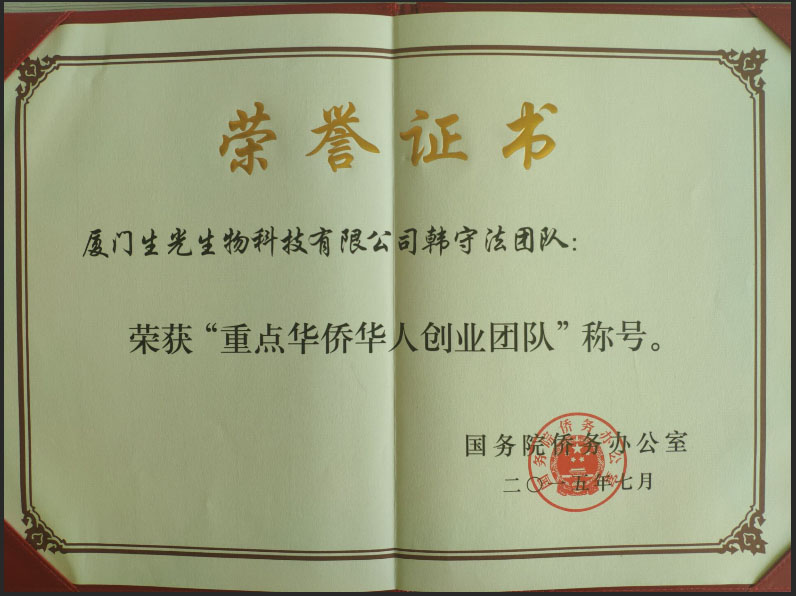 荣誉证书
厦门生光生物科技有限公司韩守法团队：
荣获“重点华侨华人创业团队”称号。
国务院侨务办公室
二〇一五年七月
国务院侨务办公室